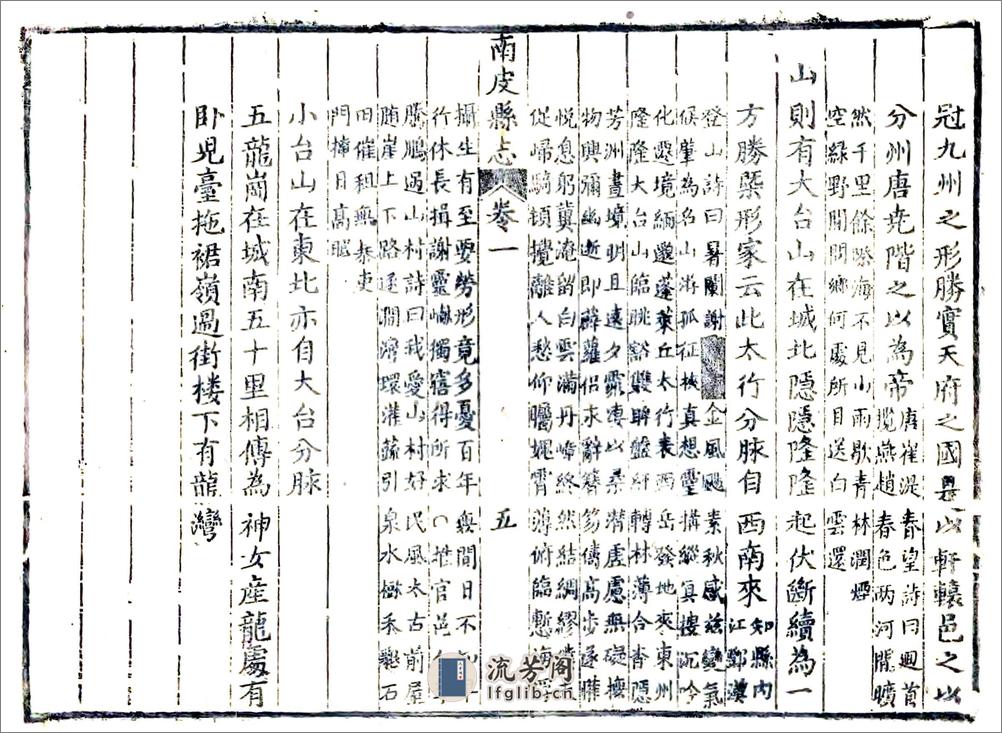 冠九州之形勝實天府之國是以軒轅邑之以
分州唐尭階之以為帝唐崔湜春望詩曰迴首
覽燕趙春色两河關曠
然千里餘際海不見山雨歇青林潤煙
空綠野閒閒鄉何處所目送白雲還
山則有大台山在城北隱隱隆隆起伏斷續為一
方勝槩形家云此太行分脉自西南來知縣内
江鄧漢
登山詩曰暑闌謝金風颸素秋感兹變氣
候肇為名山游孤征挾真想靈搆縱真摟沉吟
化還境緬邈蓬萊丘太行表西岳發地來東州
隆隆大台山臨眺豁雙眸盤紆轉林薄合杳隱
芳洲晝境明且遠夕霏凄以柔潛虛慮無礙撫
物興彌幽逝即薜蘿侣求辭簪笏儔高步遂
悦息躬冀淹留白雲滿丹嶂終然結綢繆
促歸騎頓攪離人愁仰矚媿霄薄俯臨慙海
南皮縣志 卷一 五
攝生有至要勞形竟多憂百年無間日不
行休長揖謝靈嶼獨獲得所求官邑
騰鵬過山村詩曰我愛山村好民風太古前屋
随崖上下路逐澗灣環灌蔬引泉水樹禾石
田催租無泰吏
門掩日高眠
小台山在東北亦自大台分脉
五龍崗在城南五十里相傳為神女産龍處有
卧児臺拖裙嶺過街楼下有龍灣
流芳阁
lfglib.c